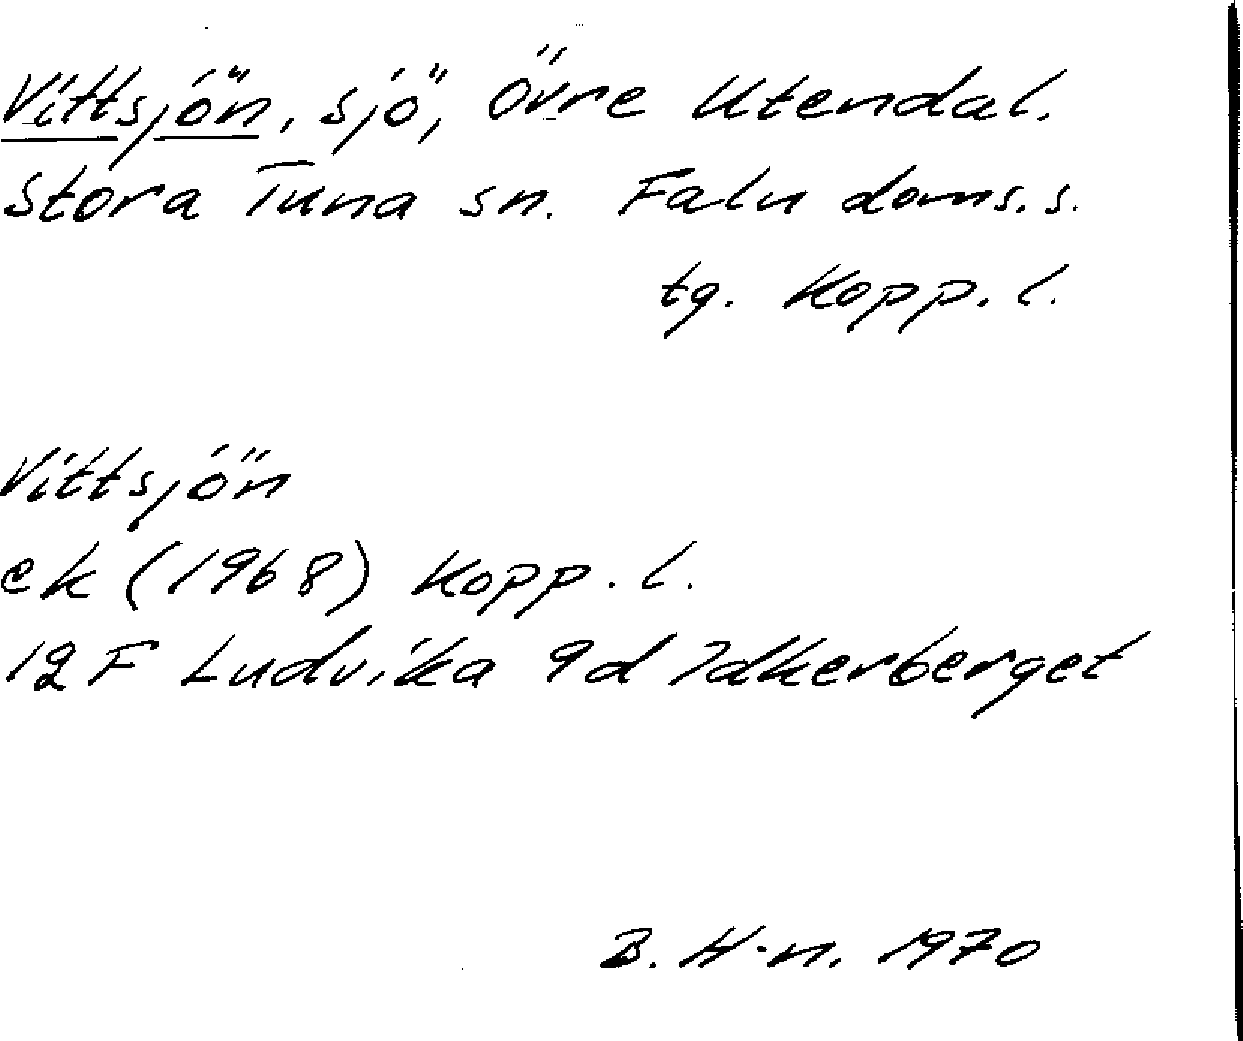 Vittsjön, sjö, Övre Utendal.
Stora Tuna sn. Falu doms.s.
tg. Kopp. l.
Vittsjön
ek (1968) Kopp. l.
12 F Ludvika 9d Idkerberget
B. H-n. 1970